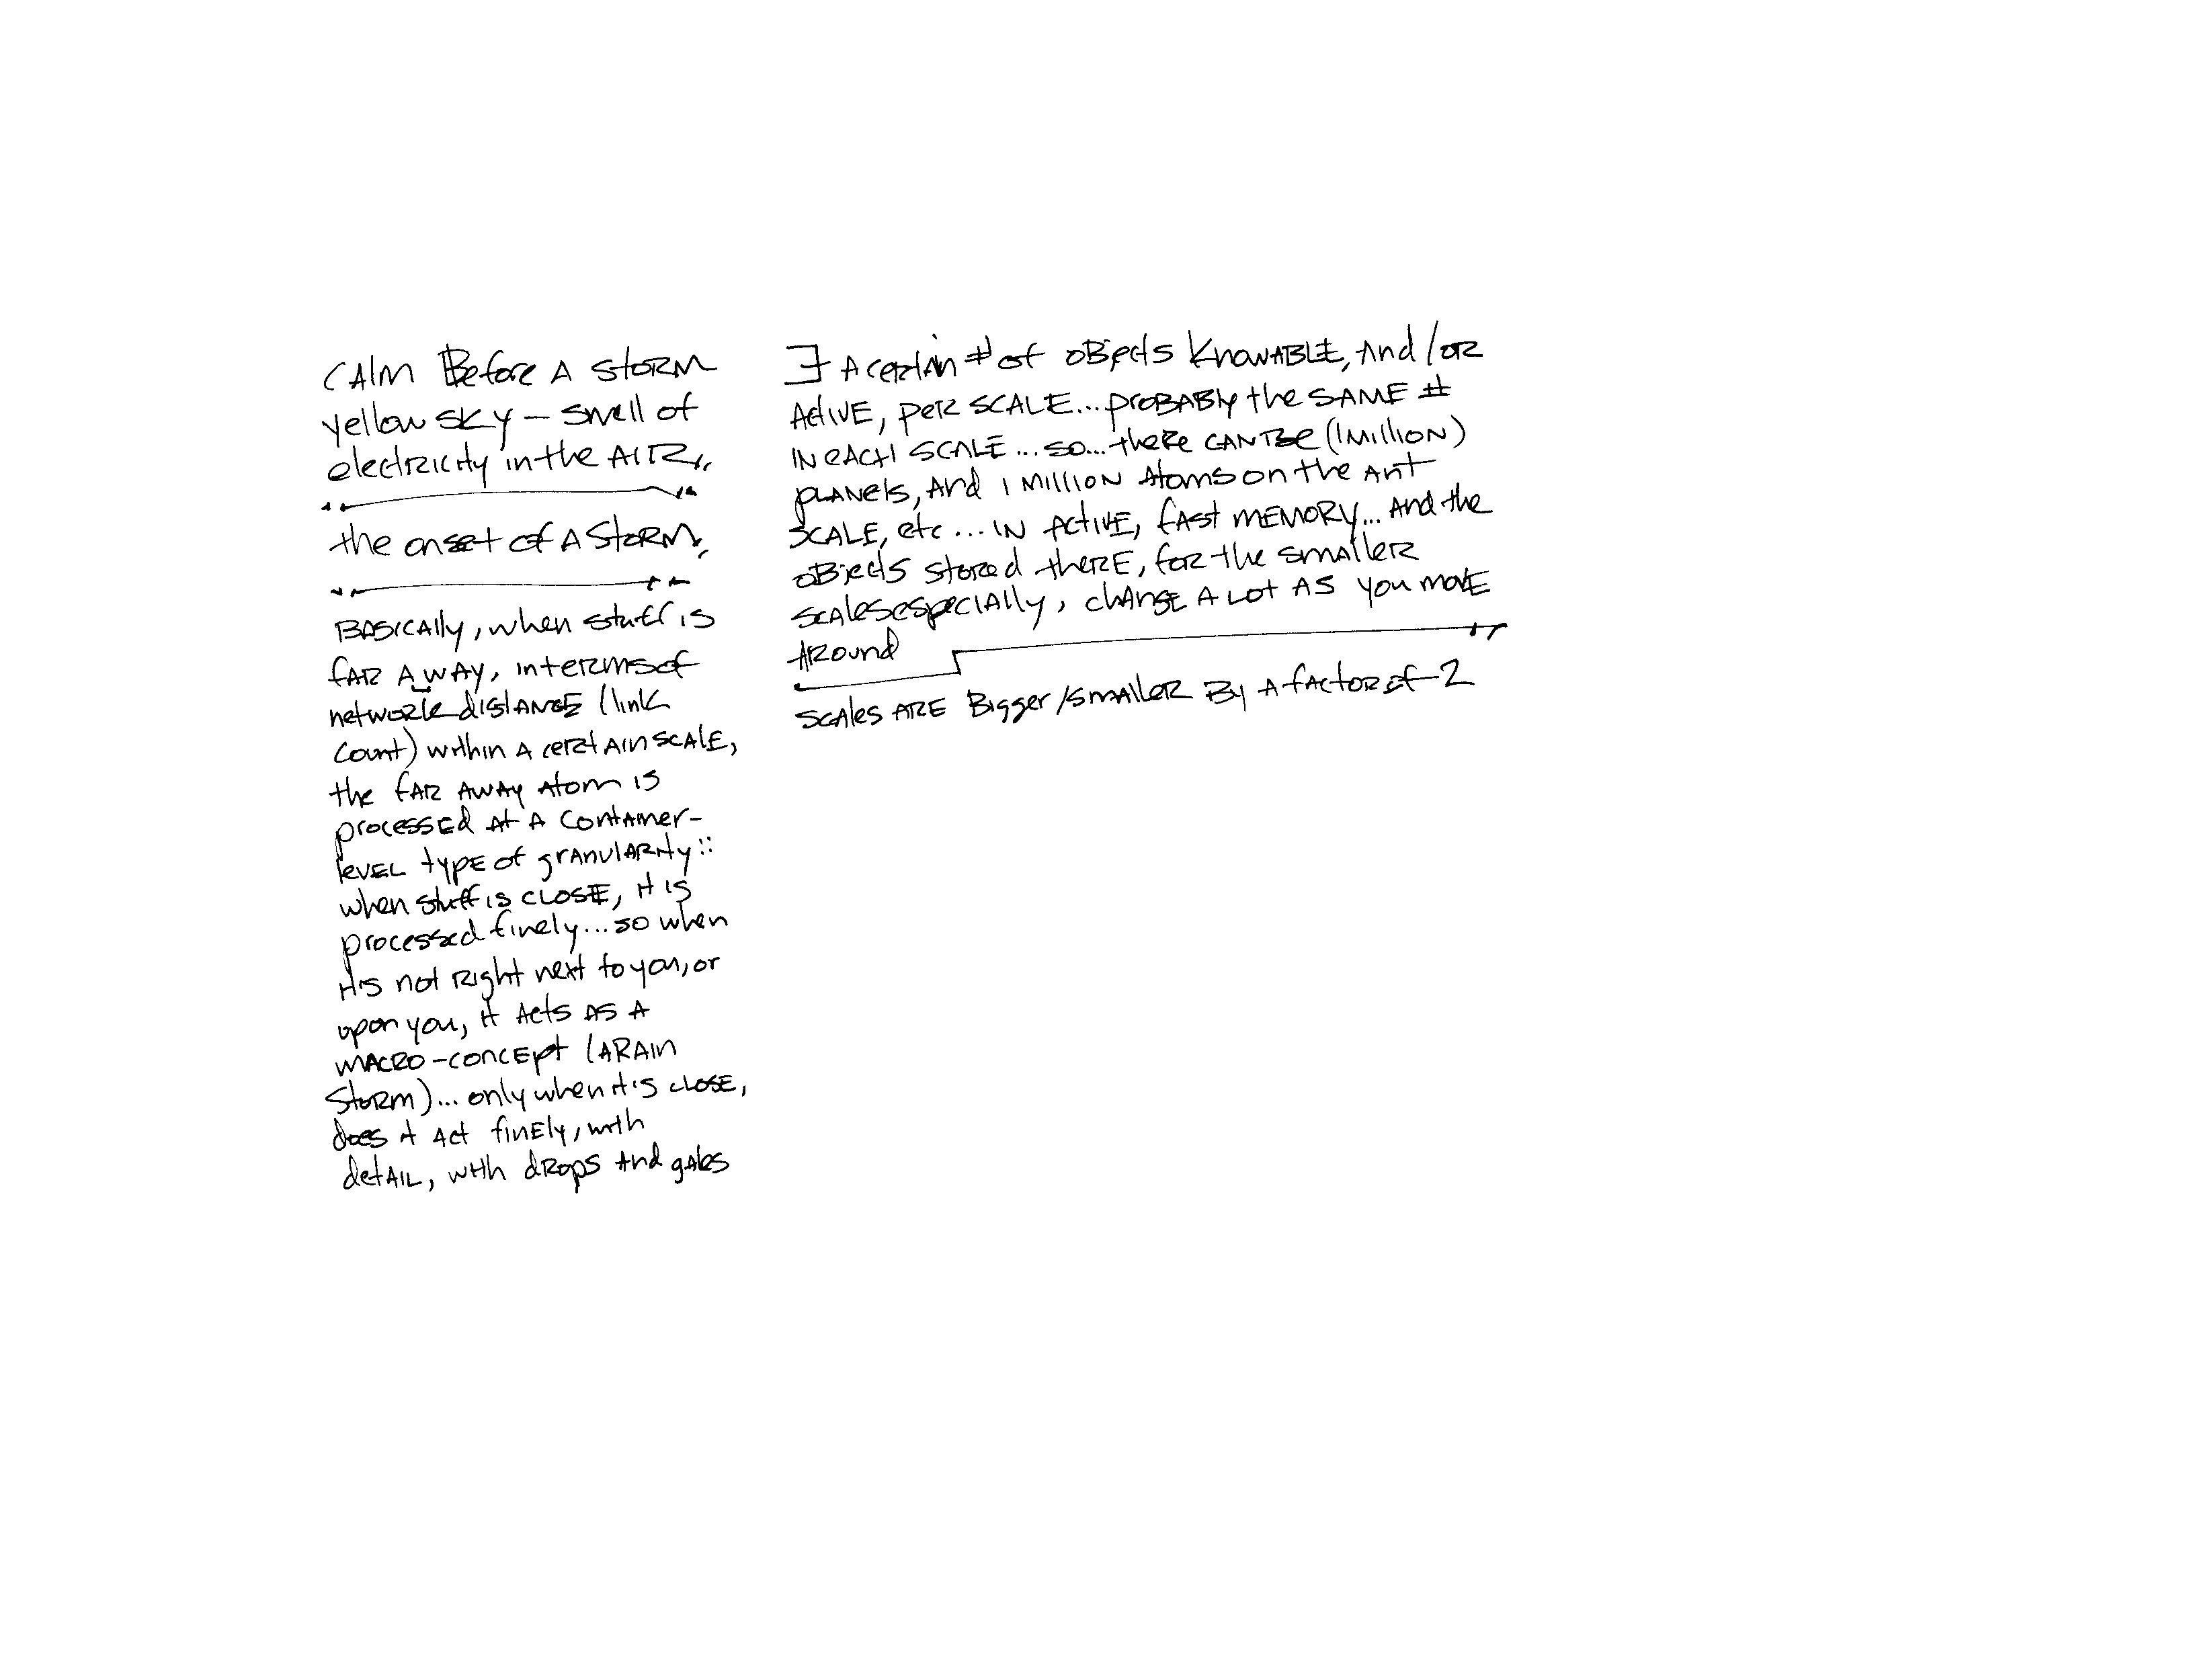 CALM Before A STORM
yellow SKY — smell of
electricity in the AIR,,
the onset of A STORM,
BASICAlly, when stuff is
fAR AWAY, in terms of
network distance (link
count) within A certain SCALE,
the fAR AWAY Atom is
processed At A container-
level type of granularity::
when stuff is CLOSE, it is
processed finely...so when
it's not Right next to you, or
upon you, it Acts AS A
MACRO-concept (A RAIN
STORM)... only when it's CLOSE,
does it Act finely, with
detAIL, with dRops And gales
∃ A certain # of oBjects KnowABLE, And/or
Active, per SCALE...proBABly the SAME #
IN eACH SCALE...so...there CAN Be (1 Million)
PLANets, And 1 MILLION Atoms on the Ant
SCALE, etc... IN Active, fAst MEMORY... And the
oBjects stored there, for the smaller
scales especIAlly, chAnge A Lot AS you move
Around
SCAles ARE Bigger/smaller By A fActor of 2